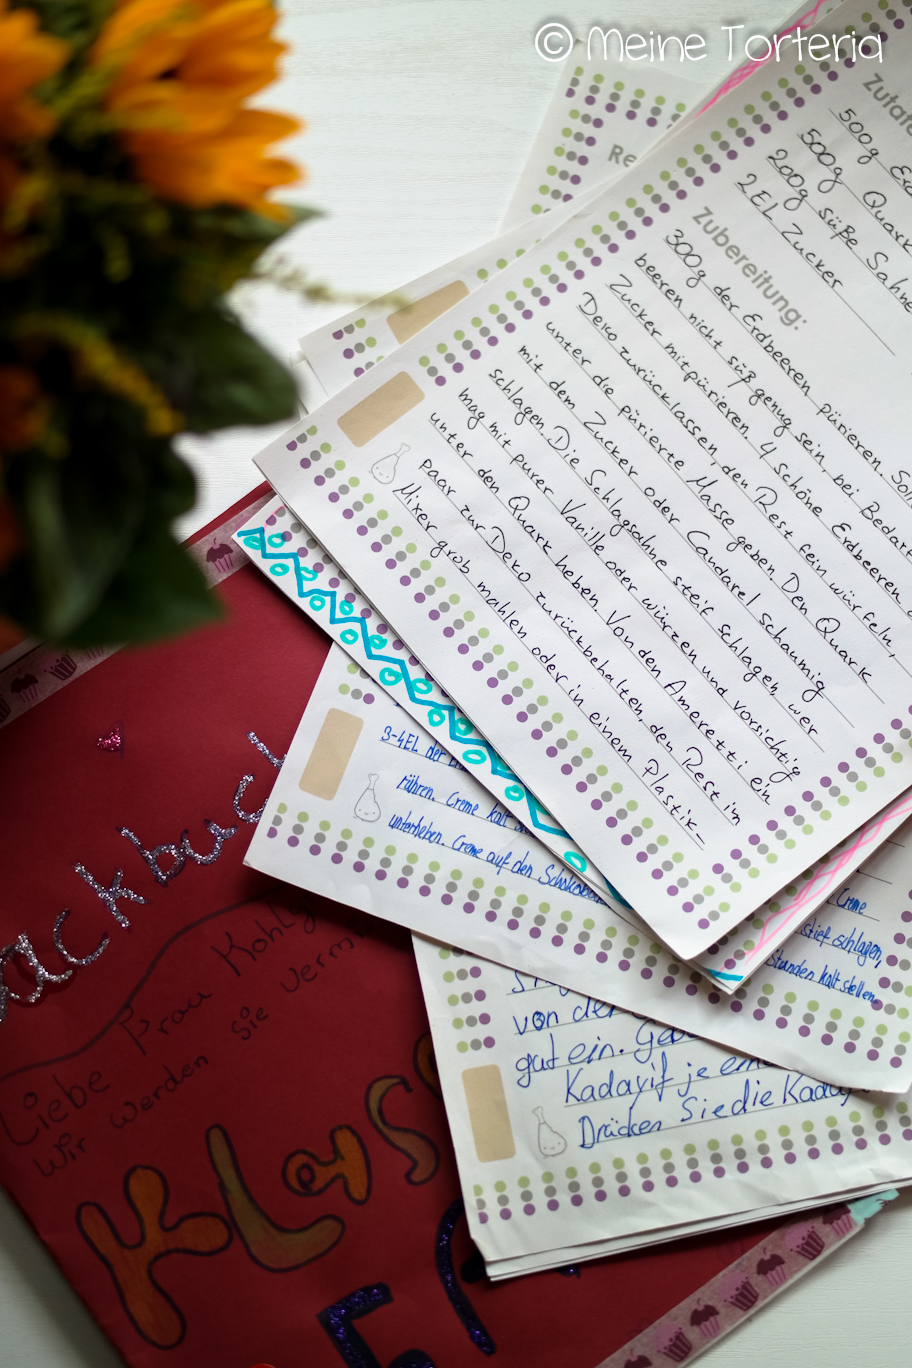 © Meine Torteria
Re
Zutat
500g Erd
500g Quark
200g süße Sahne
2 EL Zucker
Zubereitung:
300g der Erdbeeren pürieren. Sol
beeren nicht süß genug sein, bei Bedarf
Zucker mitpürieren. 4 schöne Erdbeeren
Deko zurücklassen, den Rest fein würfeln,
unter die pürierte Masse geben. Den Quark
mit dem Zucker oder Candarel schaumig
schlagen. Die Schlagsahne steif schlagen, wer
mag mit purer Vanille oder würzen und vorsichtig
unter den Quark heben. Von den Amaretti ein
paar zur Deko zurückbehalten, den Rest im
Mixer grob mahlen oder in einem Plastik-
3-4EL der
rühren. Creme kalt
unterheben. Creme auf den Schoko
Creme
steif schlagen,
Stunden kalt stellen.
von der
gut ein. Ge
Kadayif je ein
Drücken Sie die Kaday
ackbuch
Liebe Frau Kohl
wir werden sie verm
Klass